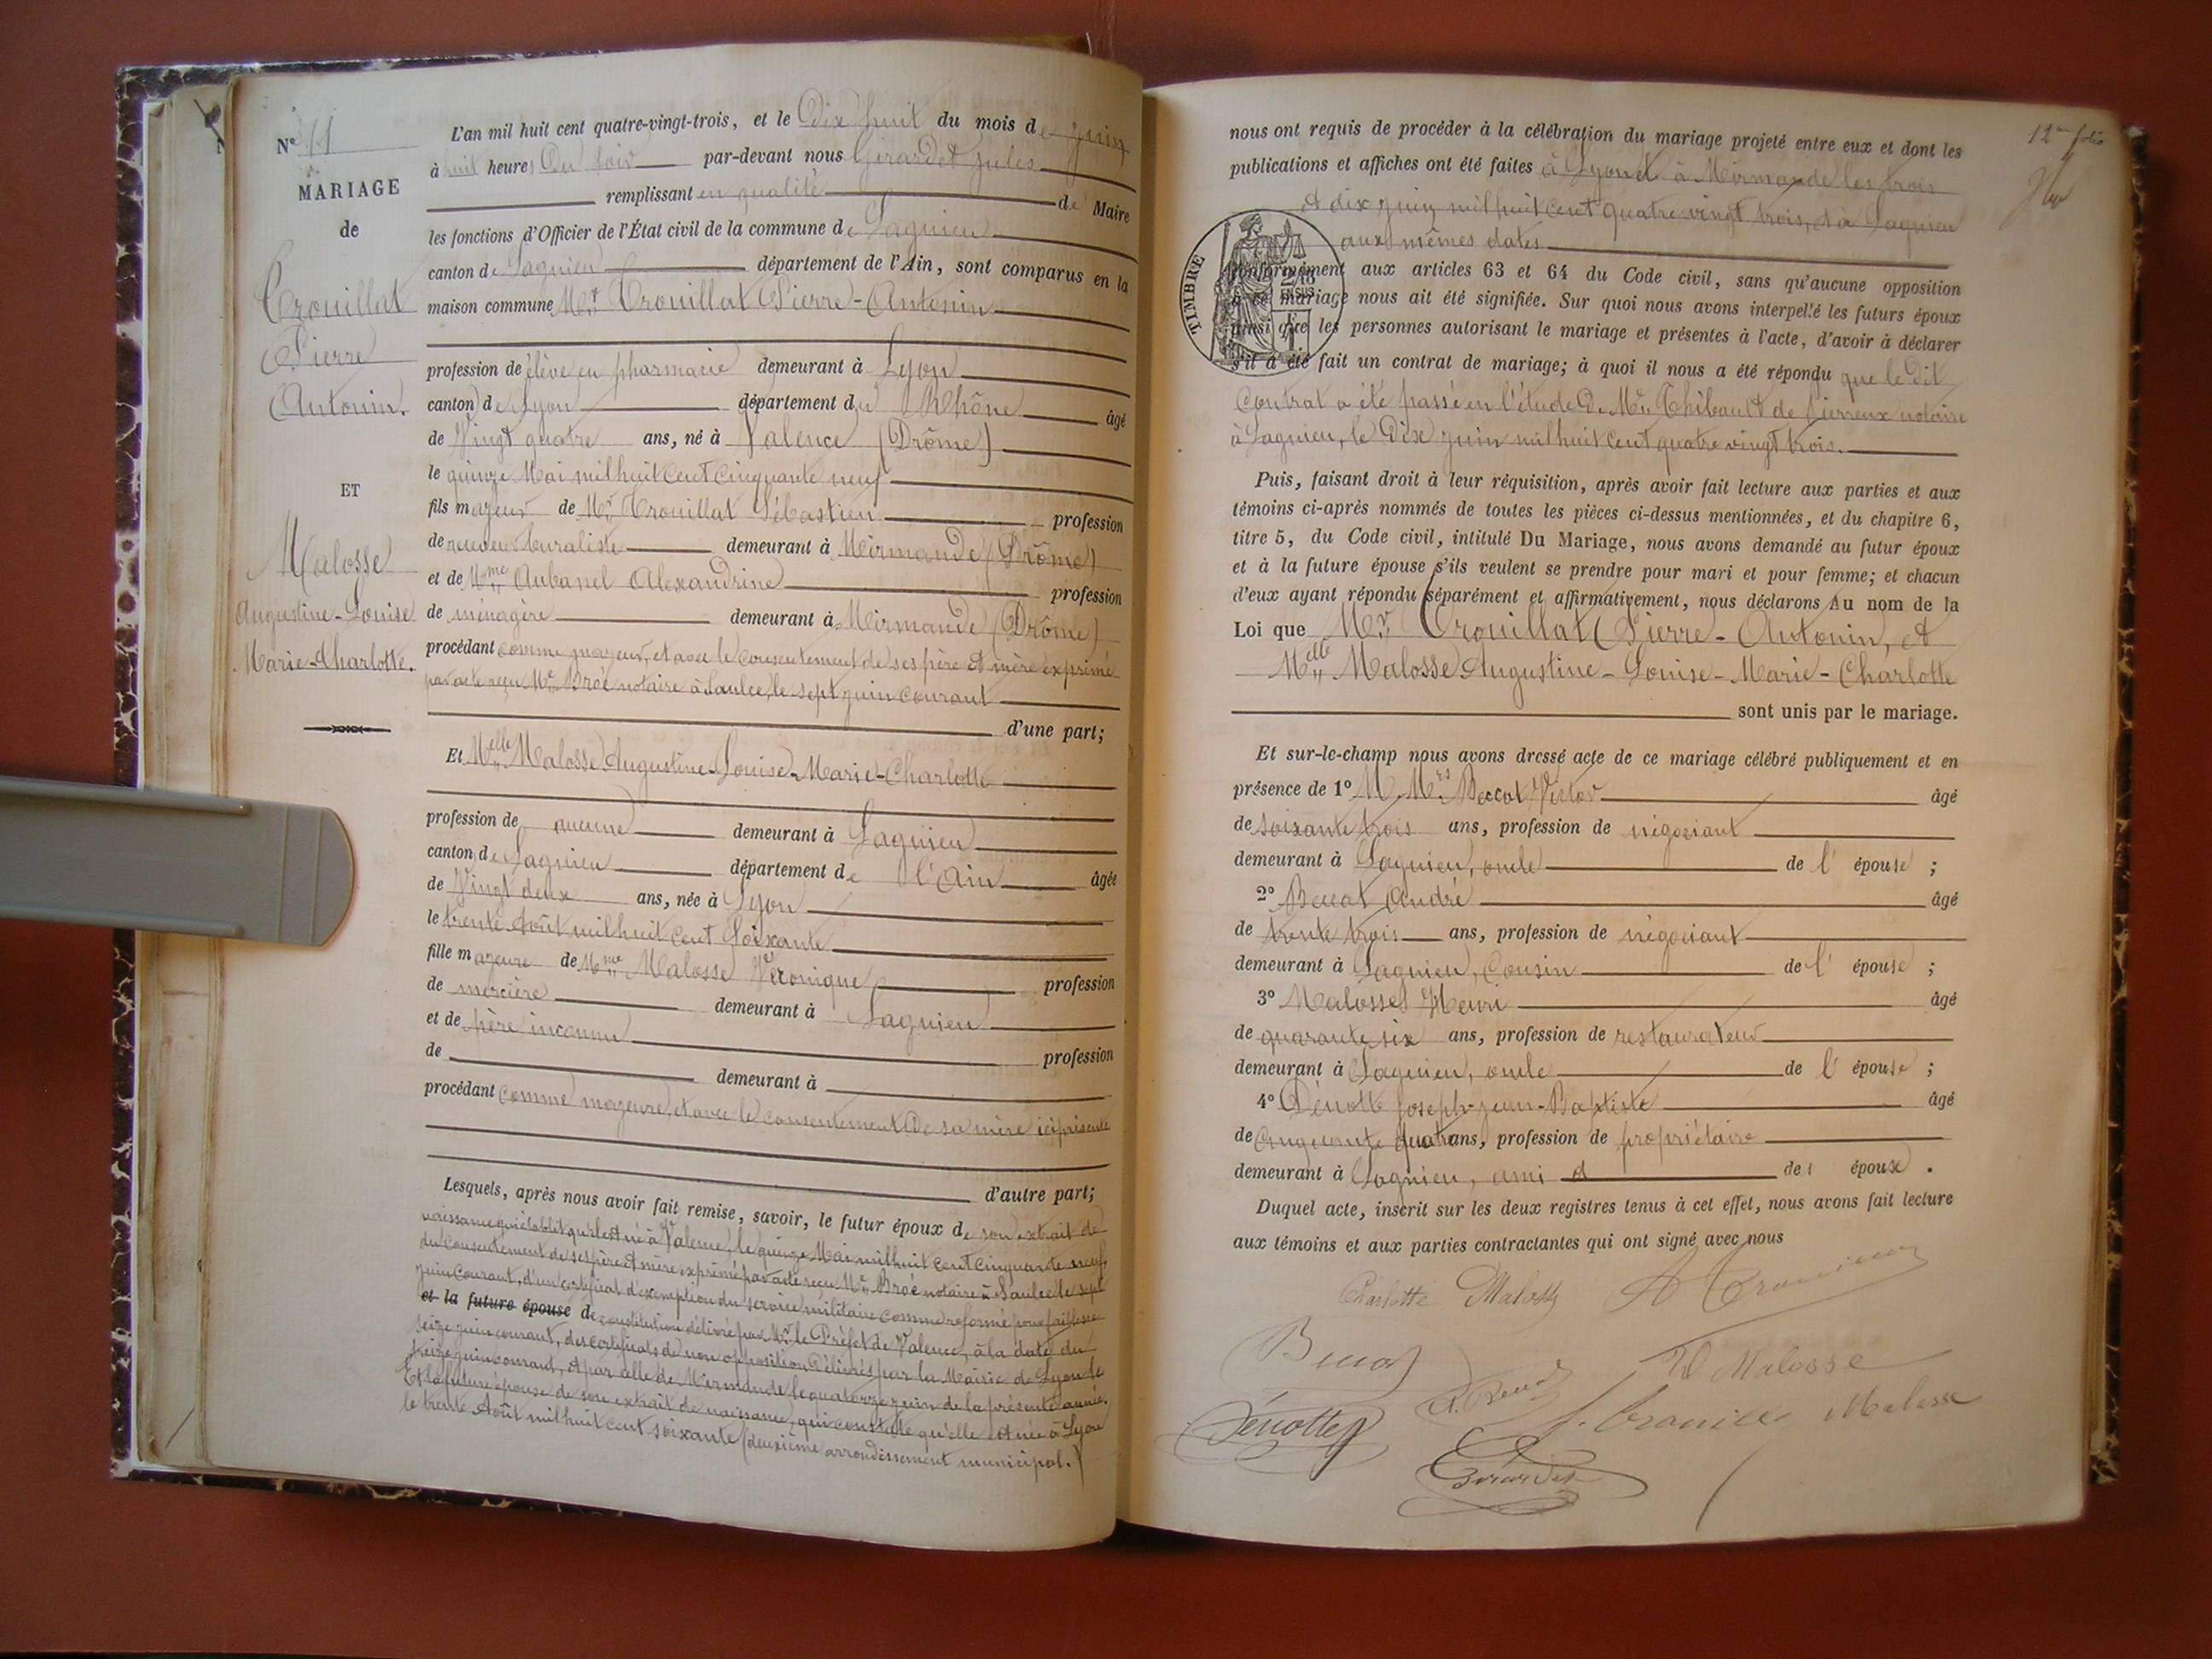 N° 11
MARIAGE
de
Trouillat
Pierre
Antonin.
ET
Malosse
Augustine-Louise
Marie-Charlotte.
L'an mil huit cent quatre-vingt-trois, et le Dix huit du mois de Juin
à huit heures Du soir par-devant nous Girardet Jules
remplissant en qualité de Maire
les fonctions d'Officier de l'État civil de la commune de Lagnieu
canton de Lagnieu département de l'Ain, sont comparus en la
maison commune Mr. Trouillat Pierre-Antonin
profession de élève en pharmacie demeurant à Lyon
canton de Lyon département du Rhône âgé
de Vingt quatre ans, né à Valence (Drôme)
le quinze Mai mil huit cent cinquante neuf
fils majeur de Mr. Trouillat Sébastien profession
de receveur buraliste demeurant à Mirmande (Drôme)
et de Mme Aubanel Alexandrine profession
de ménagère demeurant à Mirmande (Drôme)
procédant comme majeur, et avec le consentement de ses père et mère exprimé
par acte reçu Me. Broé notaire à Saulce, le sept juin courant
d'une part;
Et Melle Malosse Augustine-Louise-Marie-Charlotte
profession de aucune demeurant à Lagnieu
canton de Lagnieu département de l'Ain âgée
de Vingt deux ans, née à Lyon
le trente Août mil huit cent soixante
fille majeure de Mme Malosse Véronique profession
de mercière demeurant à Lagnieu
et de père inconnu profession
de demeurant à
procédant comme majeure, et avec le consentement de sa mère ici présente
d'autre part;
Lesquels, après nous avoir fait remise, savoir, le futur époux de son extrait de
naissance qui établit qu'il est né à Valence, le quinze Mai mil huit cent cinquante neuf,
du consentement de ses père et mère exprimé par acte reçu Me. Broé notaire à Saulce le sept
juin courant, d'un certificat d'exemption du service militaire comme réformé pour faiblesse
et la future épouse de constitution délivré par Mr. le Préfet de Valence, à la date du
seize juin courant, des certificats de non opposition délivrés par la Mairie de Lyon le
seize juin courant, et par celle de Mirmande le quatorze juin de la présente année.
Et la future épouse de son extrait de naissance, qui constate qu'elle est née à Lyon
le trente Août mil huit cent soixante (deuxième arrondissement municipal.)
12me folio
nous ont requis de procéder à la célébration du mariage projeté entre eux et dont les
publications et affiches ont été faites à Lyon et à Mirmande les trois
et dix juin mil huit cent quatre vingt trois, et à Lagnieu
aux mêmes dates
TIMBRE
conformément aux articles 63 et 64 du Code civil, sans qu'aucune opposition
à ce mariage nous ait été signifiée. Sur quoi nous avons interpellé les futurs époux
ainsi que les personnes autorisant le mariage et présentes à l'acte, d'avoir à déclarer
s'il a été fait un contrat de mariage; à quoi il nous a été répondu que le dit
contrat a été passé en l'étude de Me. Thibault de Pierreux notaire
à Lagnieu, le Dix juin mil huit cent quatre vingt trois.
Puis, faisant droit à leur réquisition, après avoir fait lecture aux parties et aux
témoins ci-après nommés de toutes les pièces ci-dessus mentionnées, et du chapitre 6,
titre 5, du Code civil, intitulé Du Mariage, nous avons demandé au futur époux
et à la future épouse s'ils veulent se prendre pour mari et pour femme; et chacun
d'eux ayant répondu séparément et affirmativement, nous déclarons Au nom de la
Loi que Mr. Trouillat Pierre-Antonin, et
Melle Malosse Augustine-Louise-Marie-Charlotte
sont unis par le mariage.
Et sur-le-champ nous avons dressé acte de ce mariage célébré publiquement et en
présence de 1° M.Mrs Beccat Victor âgé
de soixante trois ans, profession de négociant
demeurant à Lagnieu, oncle de l'épouse;
2° Beccat André âgé
de trente trois ans, profession de négociant
demeurant à Lagnieu, Cousin de l'épouse;
3° Malosse Henri âgé
de quarante six ans, profession de restaurateur
demeurant à Lagnieu, oncle de l'épouse;
4° Dénotte Joseph-Jean-Baptiste âgé
de Cinquante quatre ans, profession de propriétaire
demeurant à Lagnieu, ami de l'épouse.
Duquel acte, inscrit sur les deux registres tenus à cet effet, nous avons fait lecture
aux témoins et aux parties contractantes qui ont signé avec nous
Charlotte Malosse A Trouillat
Beccat
A. Beccat
H Malosse
Dénotte
Malosse
Girardet